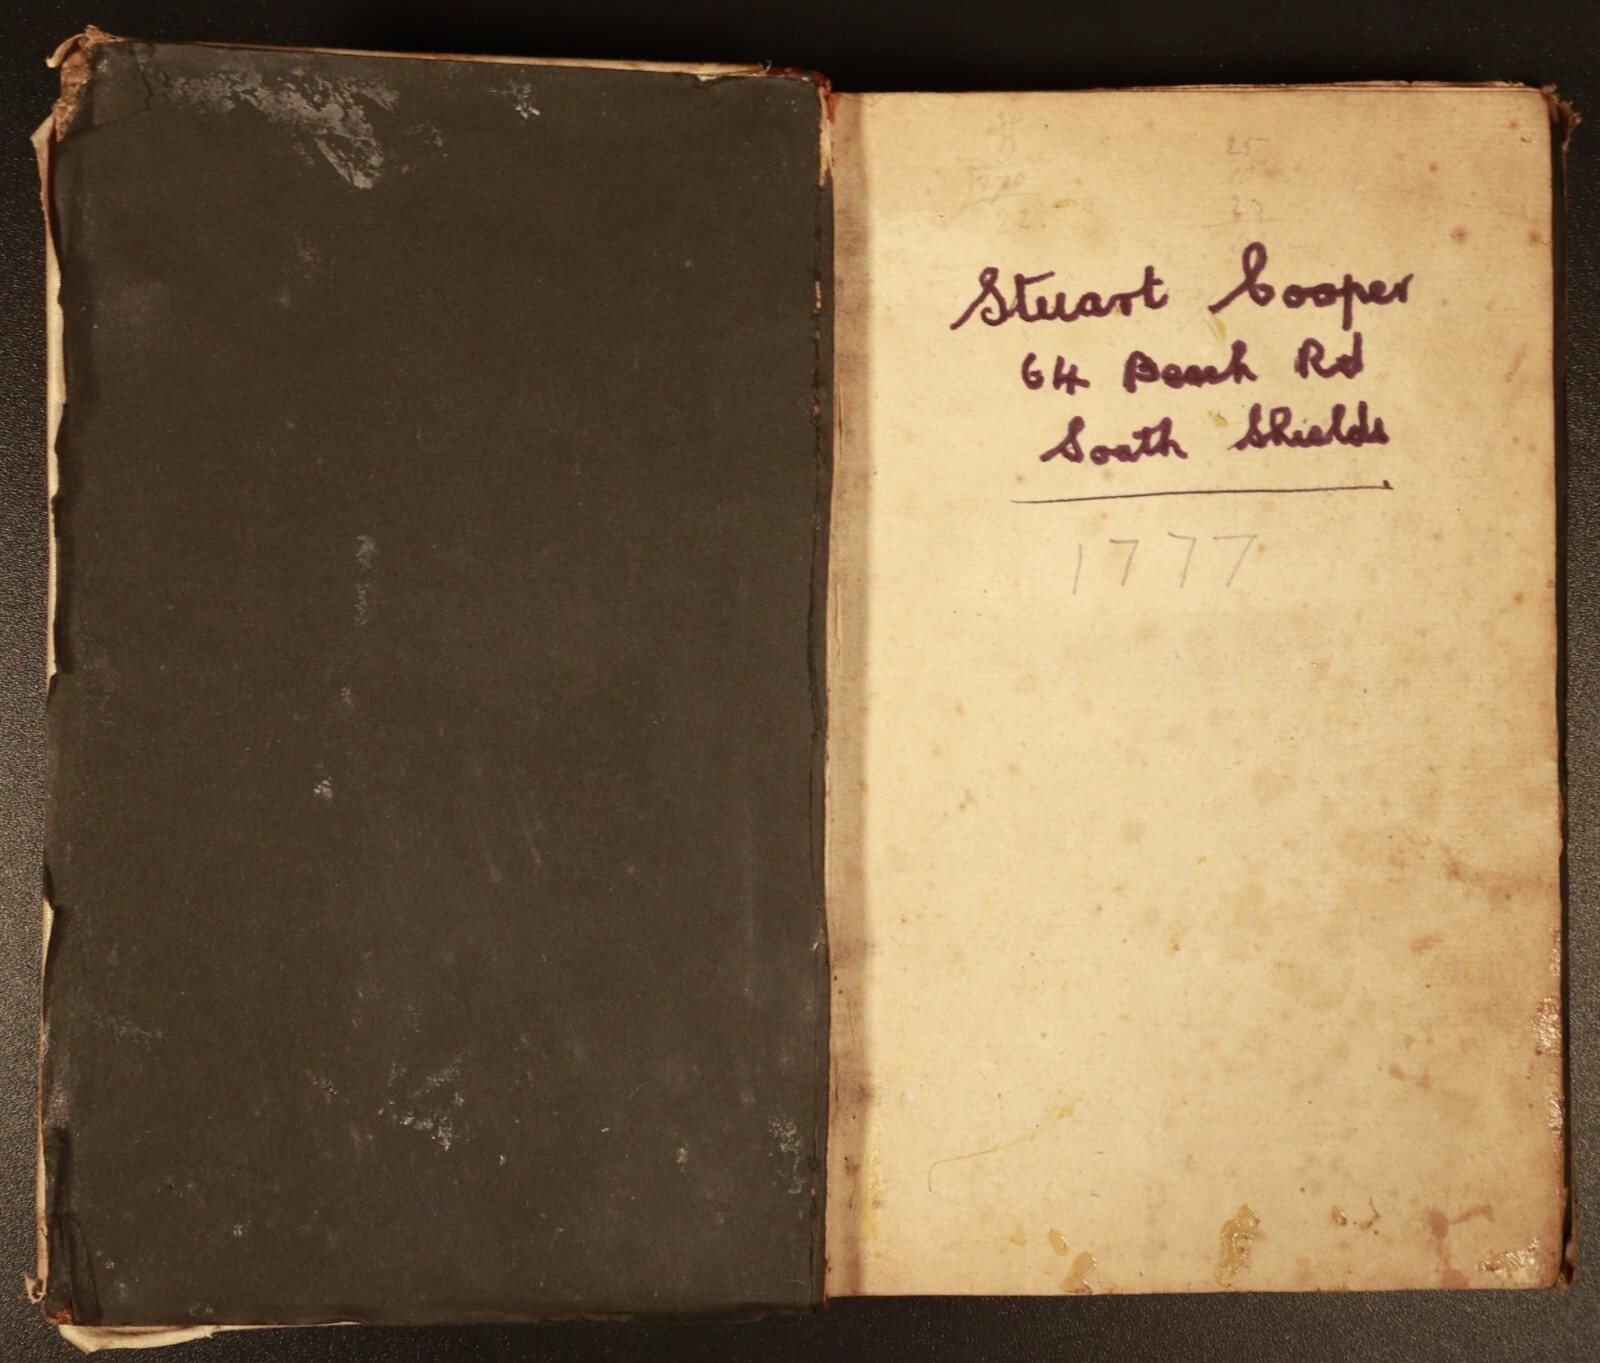 25
10
23
22
Stuart Cooper
64 Beach Rd
South Shields
1777